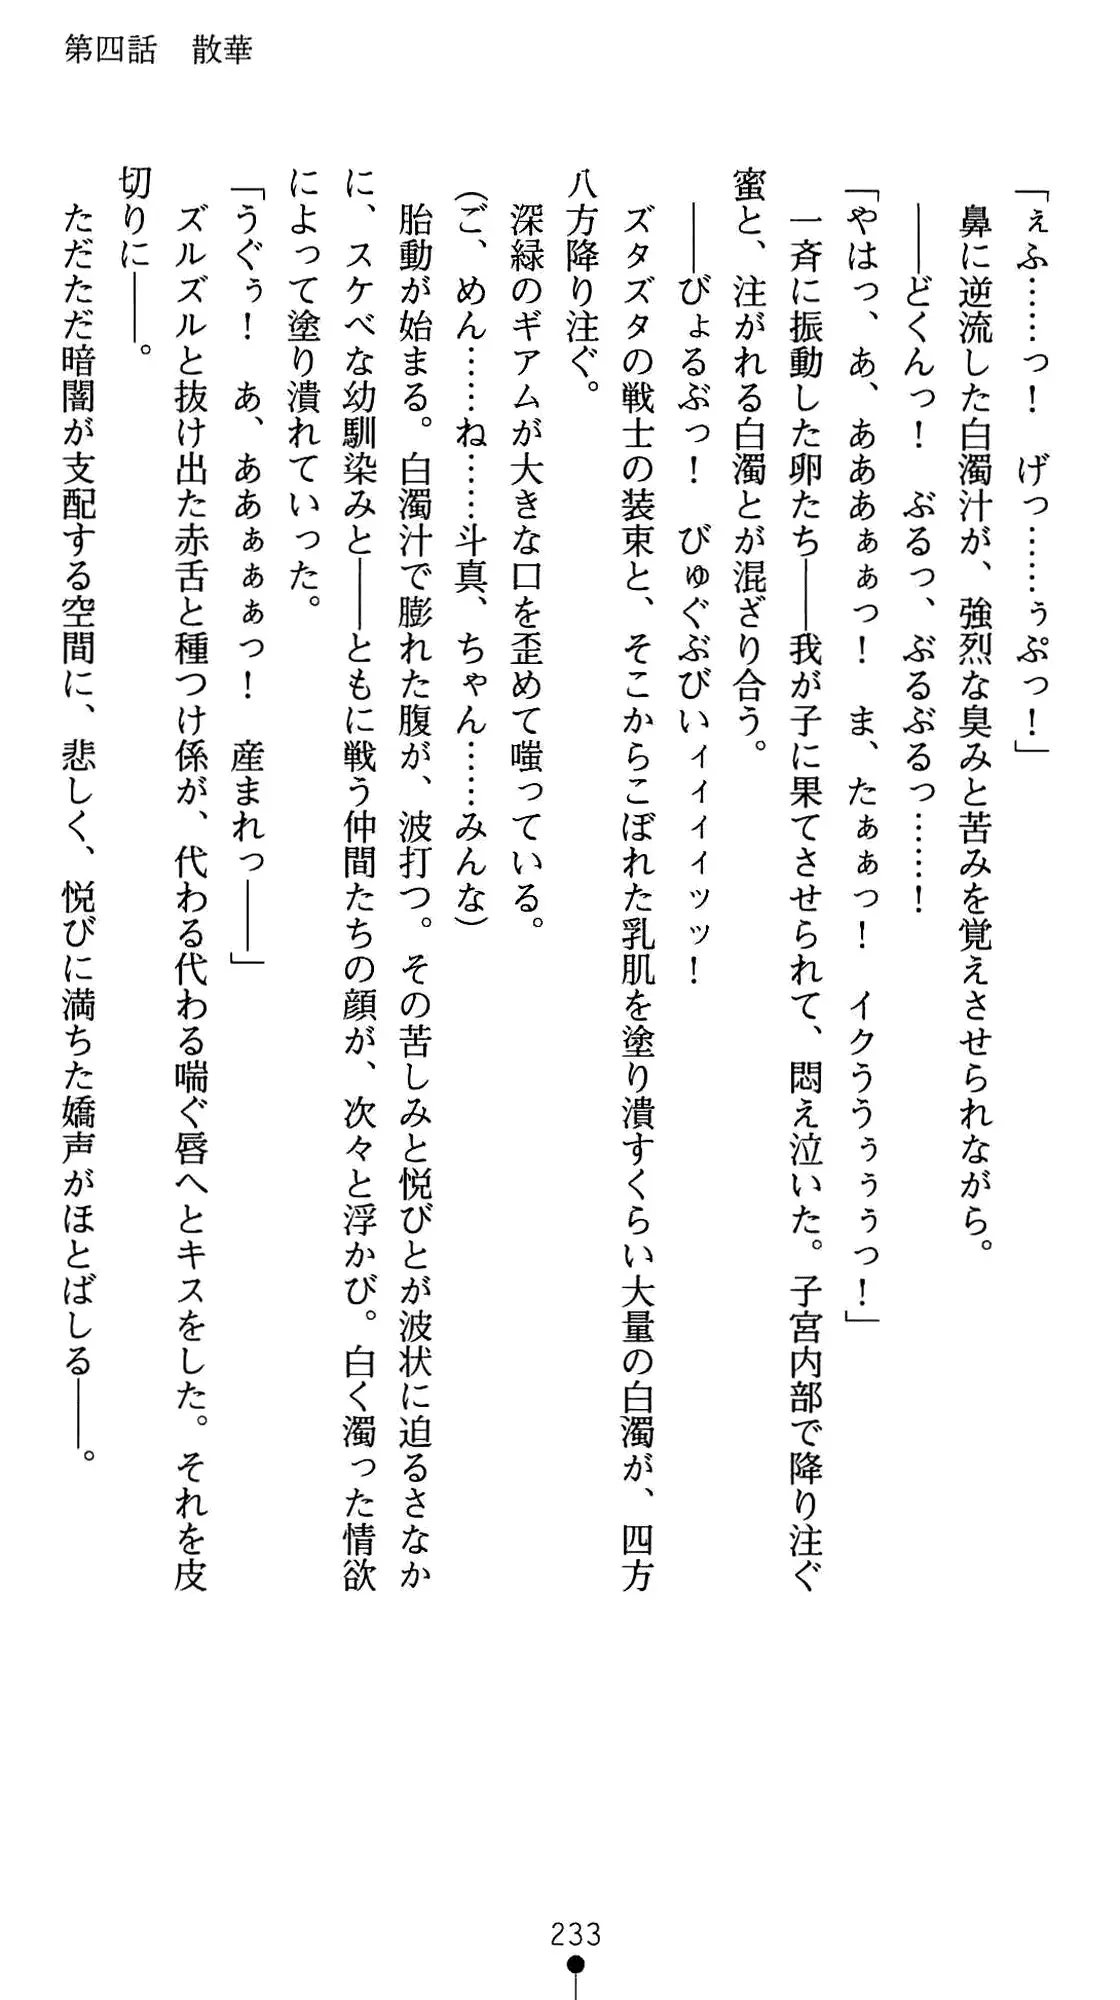 第四話　散華
「ぇふ……っ！　げっ……ぅぷっ！」
　鼻に逆流した白濁汁が、強烈な臭みと苦みを覚えさせられながら。
　――どくんっ！　ぶるっ、ぶるぶるっ……！
「やはっ、あ、あああぁぁっ！　ま、たぁぁっ！　イクううぅぅぅっ！」
　一斉に振動した卵たち――我が子に果てさせられて、悶え泣いた。子宮内部で降り注ぐ
蜜と、注がれる白濁とが混ざり合う。
　――びょるぶっ！　びゅぐぶびいィィィィッッ！
　ズタズタの戦士の装束と、そこからこぼれた乳肌を塗り潰すくらい大量の白濁が、四方
八方降り注ぐ。
　深緑のギアムが大きな口を歪めて嗤っている。
（ご、めん……ね……斗真、ちゃん……みんな）
　胎動が始まる。白濁汁で膨れた腹が、波打つ。その苦しみと悦びとが波状に迫るさなか
に、スケベな幼馴染みと――ともに戦う仲間たちの顔が、次々と浮かび。白く濁った情欲
によって塗り潰れていった。
「うぐぅ！　あ、ああぁぁぁっ！　産まれっ――」
　ズルズルと抜け出た赤舌と種つけ係が、代わる代わる喘ぐ唇へとキスをした。それを皮
切りに――。
　ただただ暗闇が支配する空間に、悲しく、悦びに満ちた嬌声がほとばしる――。
233